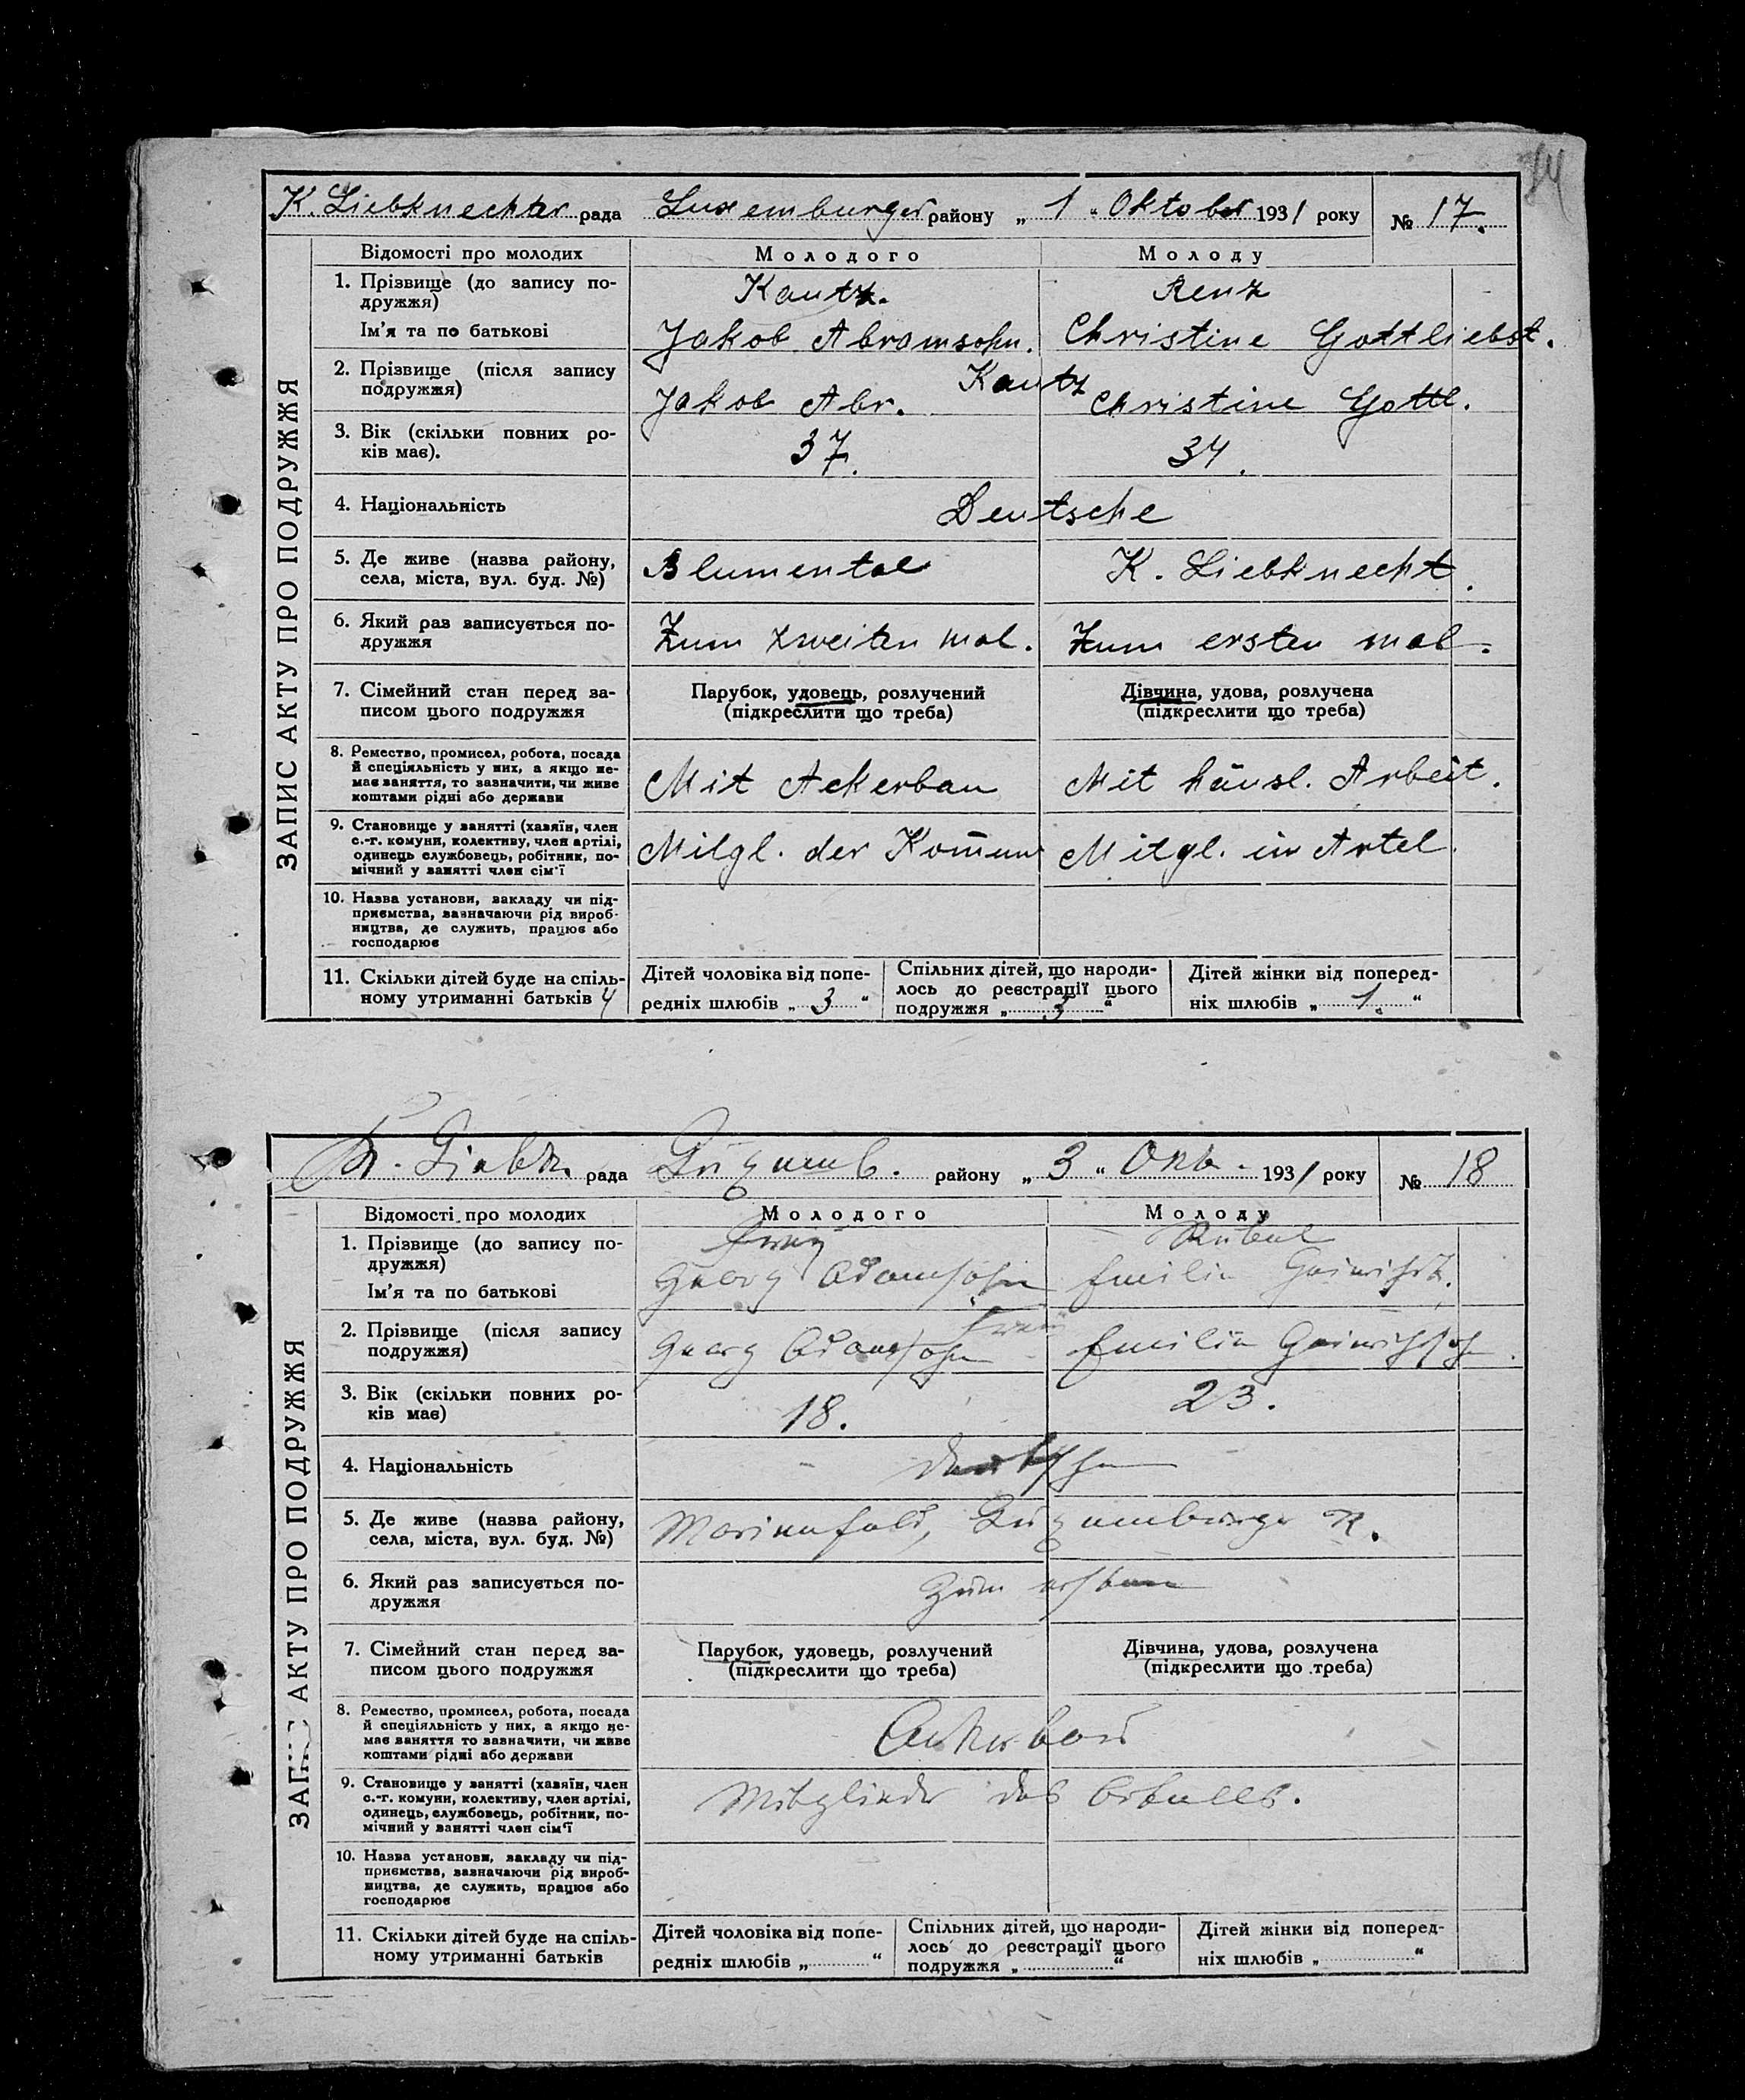 K. Liebknechter рада Luxemburger району „ 1 “ Oktober 1931 року № 17.
ЗАПИС АКТУ ПРО ПОДРУЖЖЯ
Відомості про молодих Молодого Молоду
1. Прізвище (до запису по-
дружжя) Kautz. Renz
Ім'я та по батькові Jakob Abramsohn. Christine Gottliebst.
2. Прізвище (після запису
подружжя) Kautz
Jakob Abr. Christine Gottl.
3. Вік (скільки повних ро-
ків має). 37. 34.
4. Національність Deutsche
5. Де живе (назва району,
села, міста, вул. буд. №) Blumental K. Liebknecht.
6. Який раз записується по-
дружжя Zum zweiten mal. Zum ersten mal.
7. Сімейний стан перед за-
писом цього подружжя
Парубок, удовець, розлучений
(підкреслити що треба)
Дівчина, удова, розлучена
(підкреслити що треба)
8. Ремество, промисел, робота, посада
й спеціяльність у них, а якщо не-
має заняття, то зазначити, чи живе
коштами рідні або держави
Mit Ackerbau Mit häusl. Arbeit.
9. Становище у занятті (хазяїн, член
с.-г. комуни, колективу, член артілі,
одинець службовець, робітник, по-
мічний у занятті член сім'ї
Mitgl. der Kom̄une Mitgl. in Artel.
10. Назва установи, закладу чи під-
приємства, зазначаючи рід вироб-
ництва, де служить, працює або
господарює
11. Скільки дітей буде на спіль-
ному утриманні батьків 4
Дітей чоловіка від попе-
редніх шлюбів „ 3 “
Спільних дітей, що народи-
лось до реєстрації цього
подружжя „ 3 “
Дітей жінки від поперед-
ніх шлюбів „ 1. “
K. Liebk. рада Luxemb. району „ 3 “ Okb. 1931 року № 18
ЗАПИС АКТУ ПРО ПОДРУЖЖЯ
Відомості про молодих Молодого Молоду
1. Прізвище (до запису по-
дружжя)
Ім'я та по батькові Georg Adamsohn Emilie
2. Прізвище (після запису
подружжя) Georg Adamsohn Emilie
3. Вік (скільки повних ро-
ків має) 18. 23.
4. Національність deutsche
5. Де живе (назва району,
села, міста, вул. буд. №) Marienfeld, Luxemburger R.
6. Який раз записується по-
дружжя zum ersten
7. Сімейний стан перед за-
писом цього подружжя
Парубок, удовець, розлучений
(підкреслити що треба)
Дівчина, удова, розлучена
(підкреслити що треба)
8. Ремество, промисел, робота, посада
й спеціяльність у них, а якщо не-
має заняття то зазначити, чи живе
коштами рідні або держави
Ackerbau
9. Становище у занятті (хазяїн, член
с.-г. комуни, колективу, член артілі,
одинець, службовець, робітник, по-
мічний у занятті член сім'ї
Mitglieder des
10. Назва установи, закладу чи під-
приємства, зазначаючи рід вироб-
ництва, де служить, працює або
господарює
11. Скільки дітей буде на спіль-
ному утриманні батьків
Дітей чоловіка від попе-
редніх шлюбів „ “
Спільних дітей, що народи-
лось до реєстрації цього
подружжя „ “
Дітей жінки від поперед-
ніх шлюбів „ “